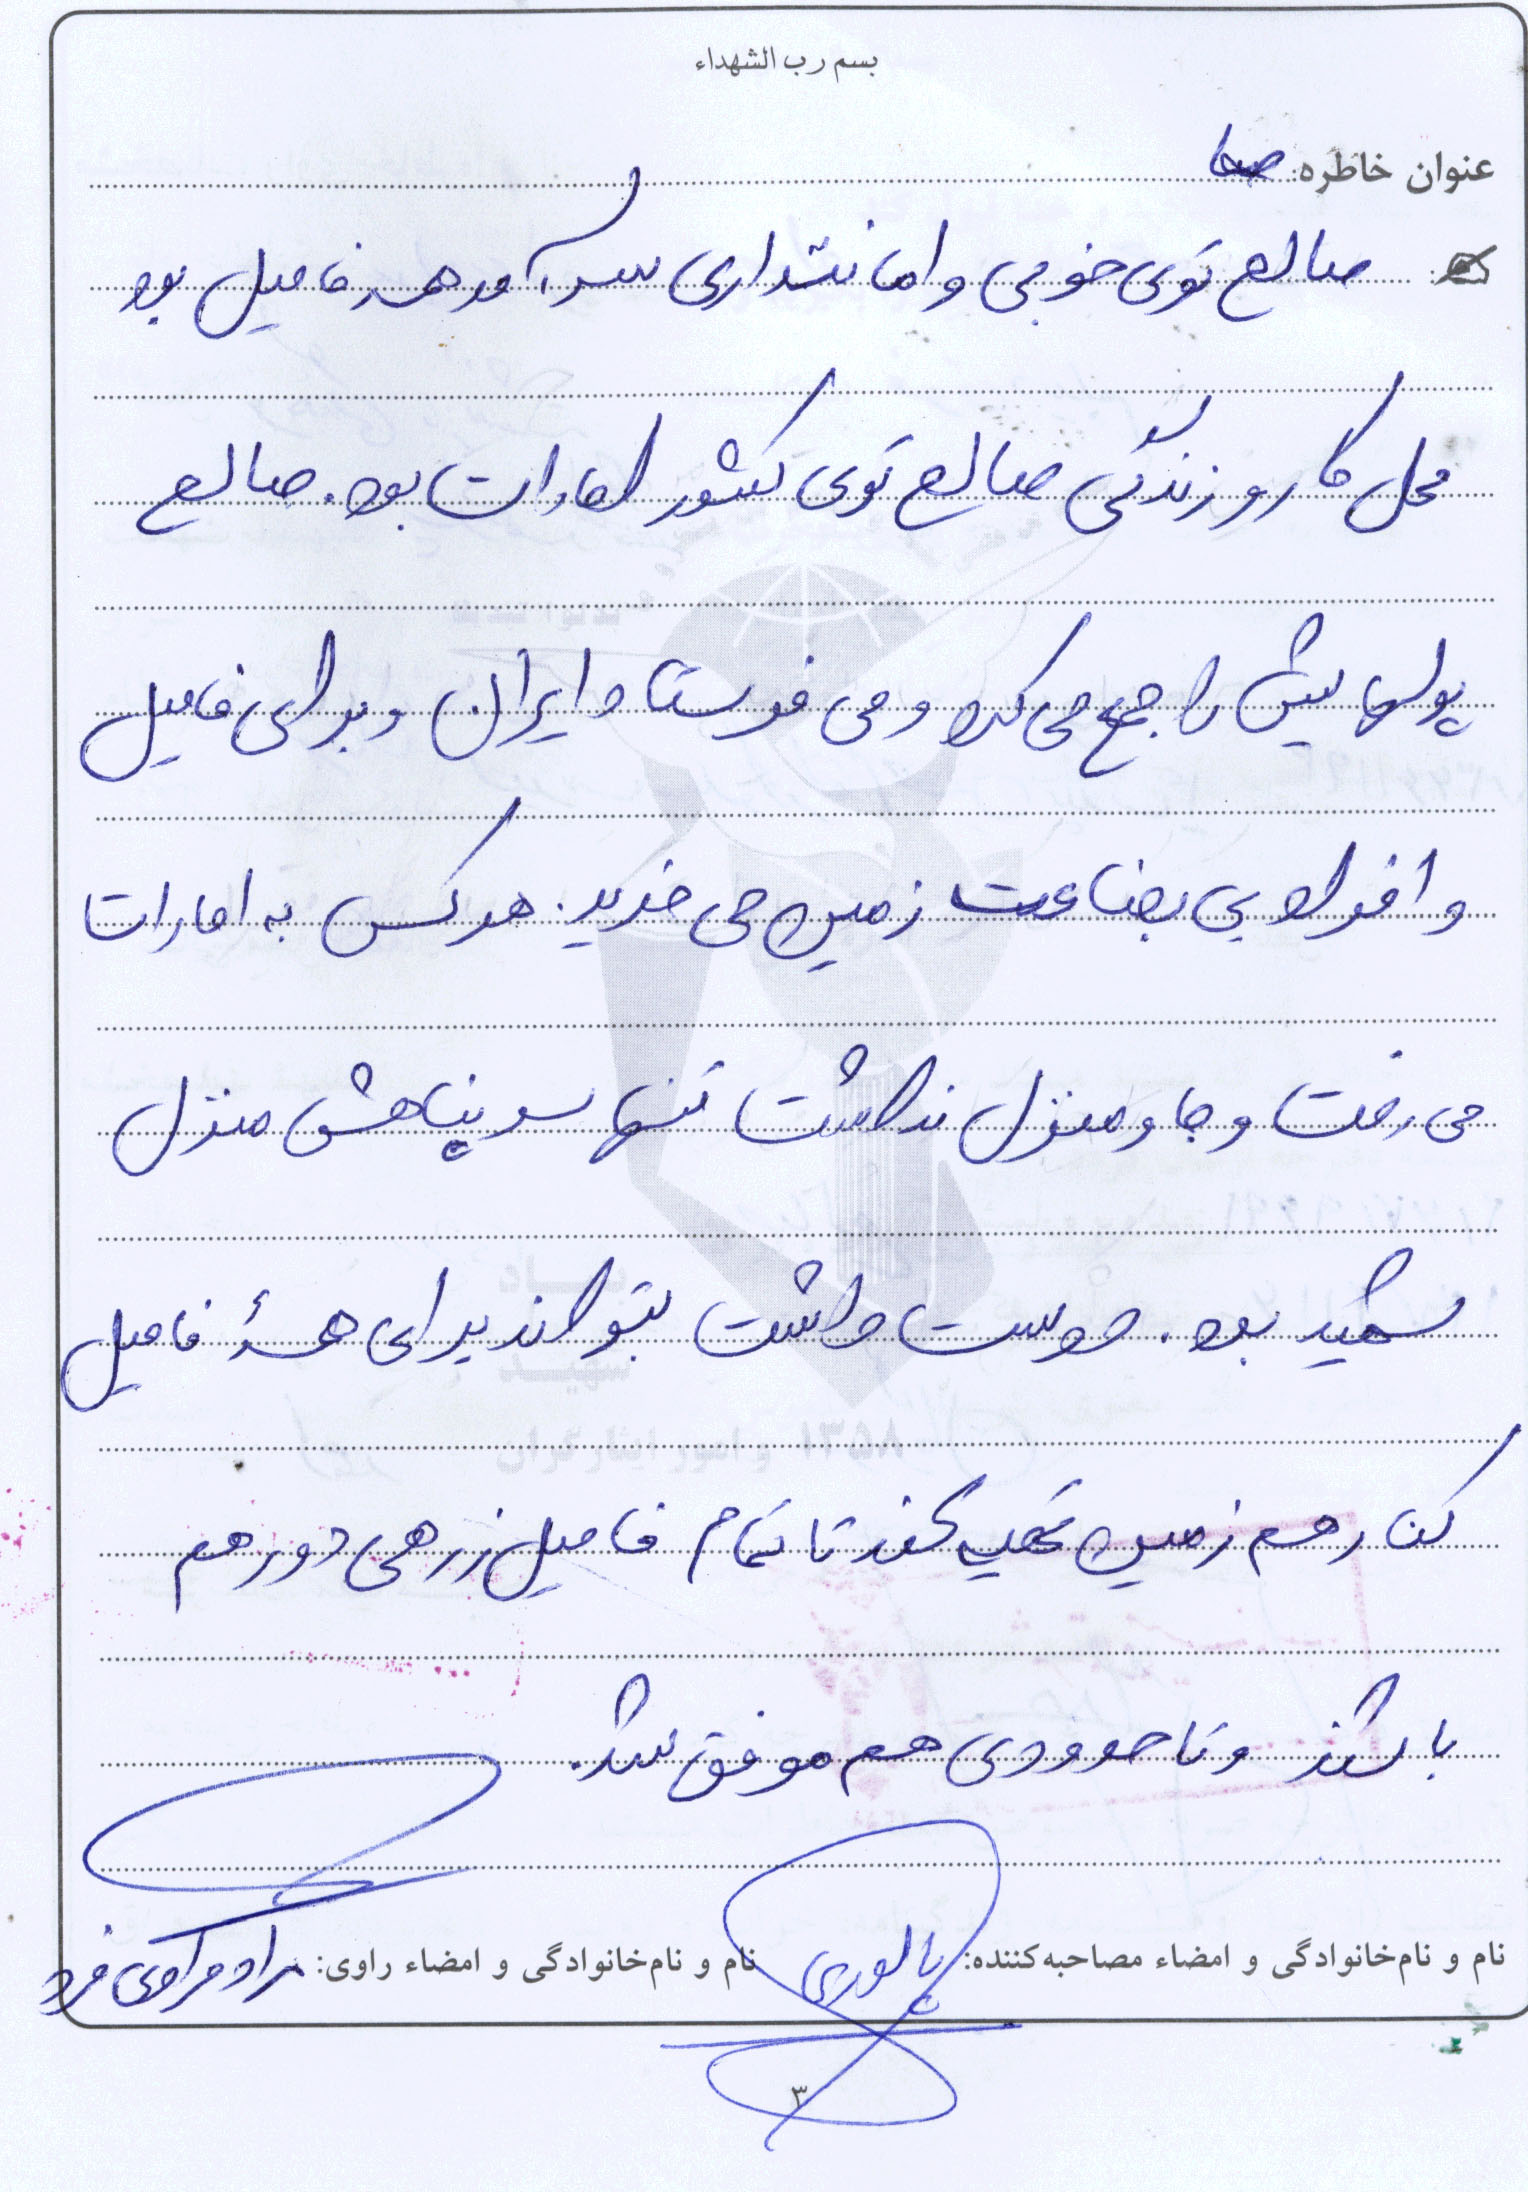 بسم رب الشهداء
عنوان خاطره:
صالح توی خوبی و امانتداری سرآمد همه فامیل بود
محل کار و زندگی صالح توی کشور امارات بود. صالح
پولهایش را جمع می کرد و می فرستاد ایران و برای فامیل
و افراد بی بضاعت زمین می خرید. هر کس به امارات
می رفت و جا و منزل نداشت تنها سرپناهش منزل
شهید بود. دوست داشت بتواند برای همهٔ فامیل
کنار هم زمین تهیه کند تا تمام فامیل زرهی دور هم
باشند و تا حدودی هم موفق شد.
نام و نام خانوادگی و امضاء مصاحبه کننده: نام و نام خانوادگی و امضاء راوی:
۳
بنیاد
شهید
و امور ایثارگران ۱۳۵۸